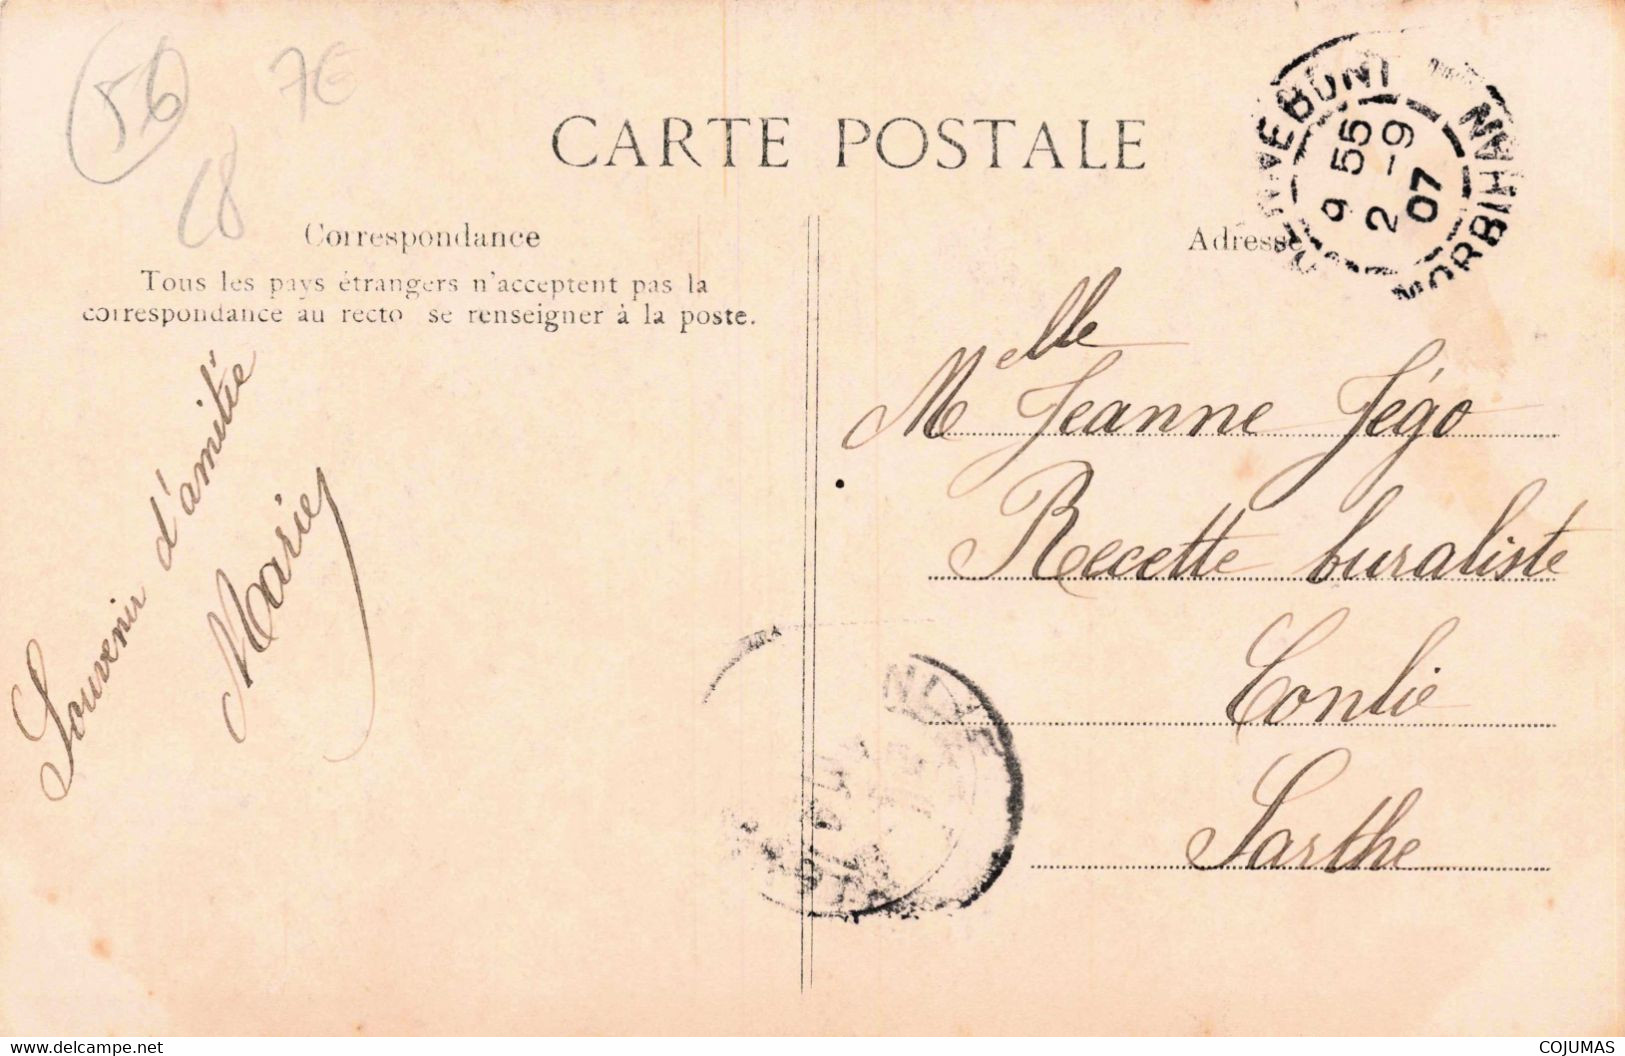 56
7€
CARTE POSTALE
9 55
2 -9
07
MORBIHAN
Correspondance
Adresse
Tous les pays étrangers n'acceptent pas la
correspondance au recto se renseigner à la poste.
Souvenir d'amitié
Marie
Melle Jeanne Jégo
Recette buraliste
Conlie
Sarthe
www.delcampe.net
COJUMAS